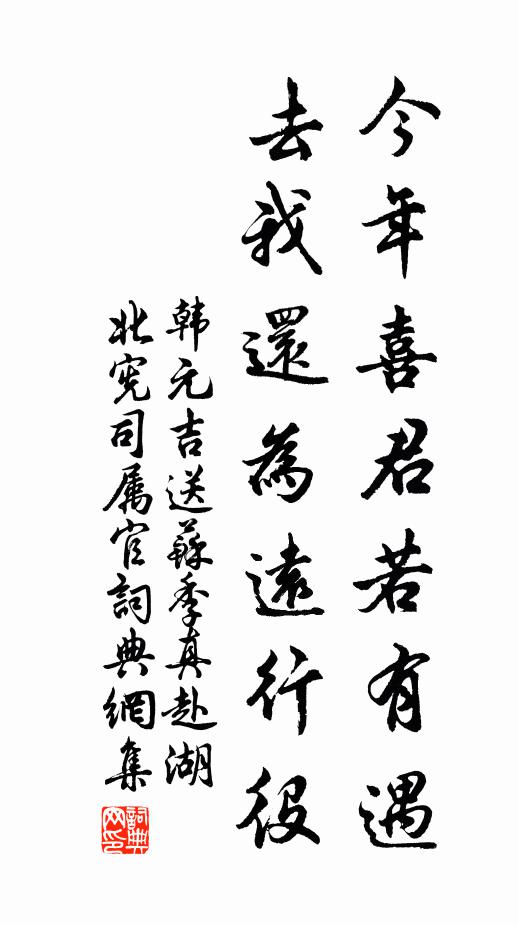 今年喜君若有遇
去我還為遠行役
韩元吉送蘇季真赴湖
北宪司属官詞典網集
詞典网印